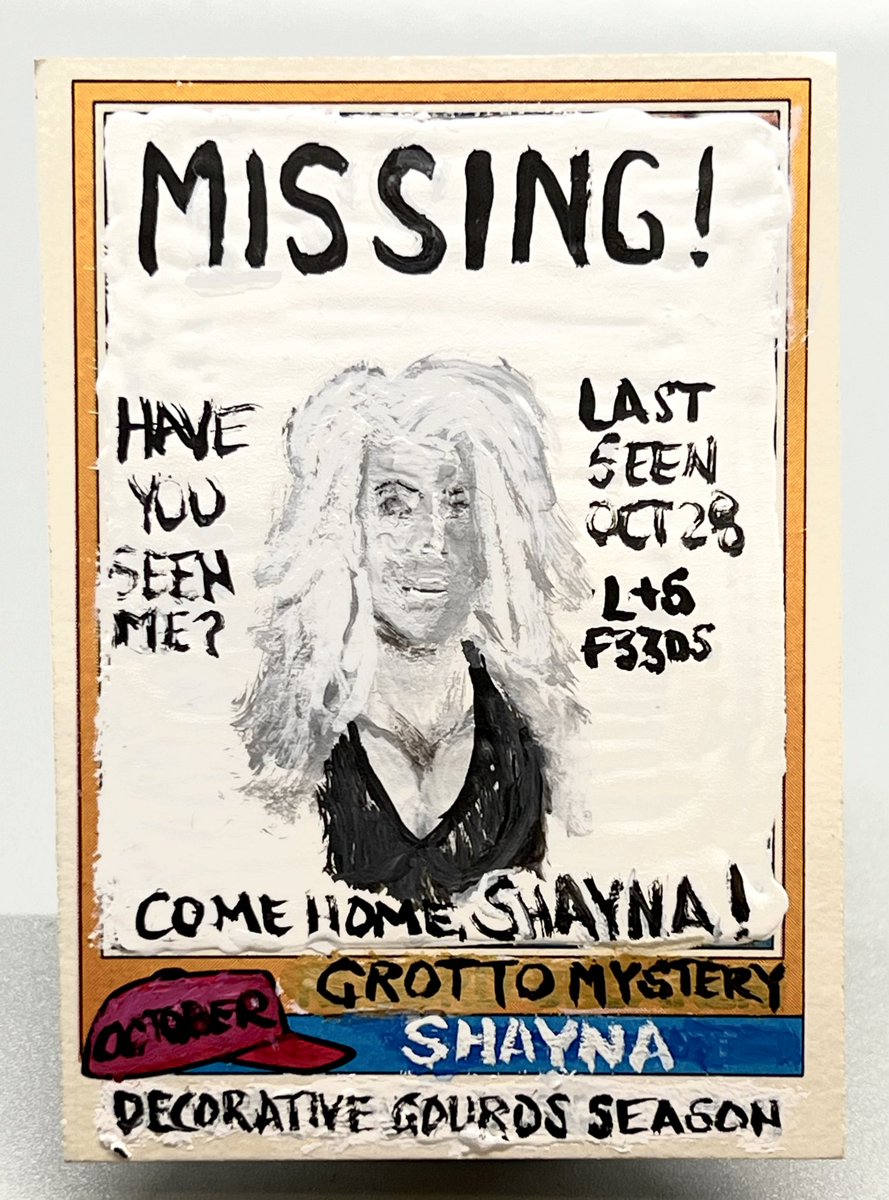 MISSING!
HAVE
YOU
SEEN
ME?
LAST
SEEN
OCT 28
L+S
F33DS
COME HOME, SHAYNA!
GROTTO MYSTERY
OCTOBER
SHAYNA
DECORATIVE GOURDS SEASON